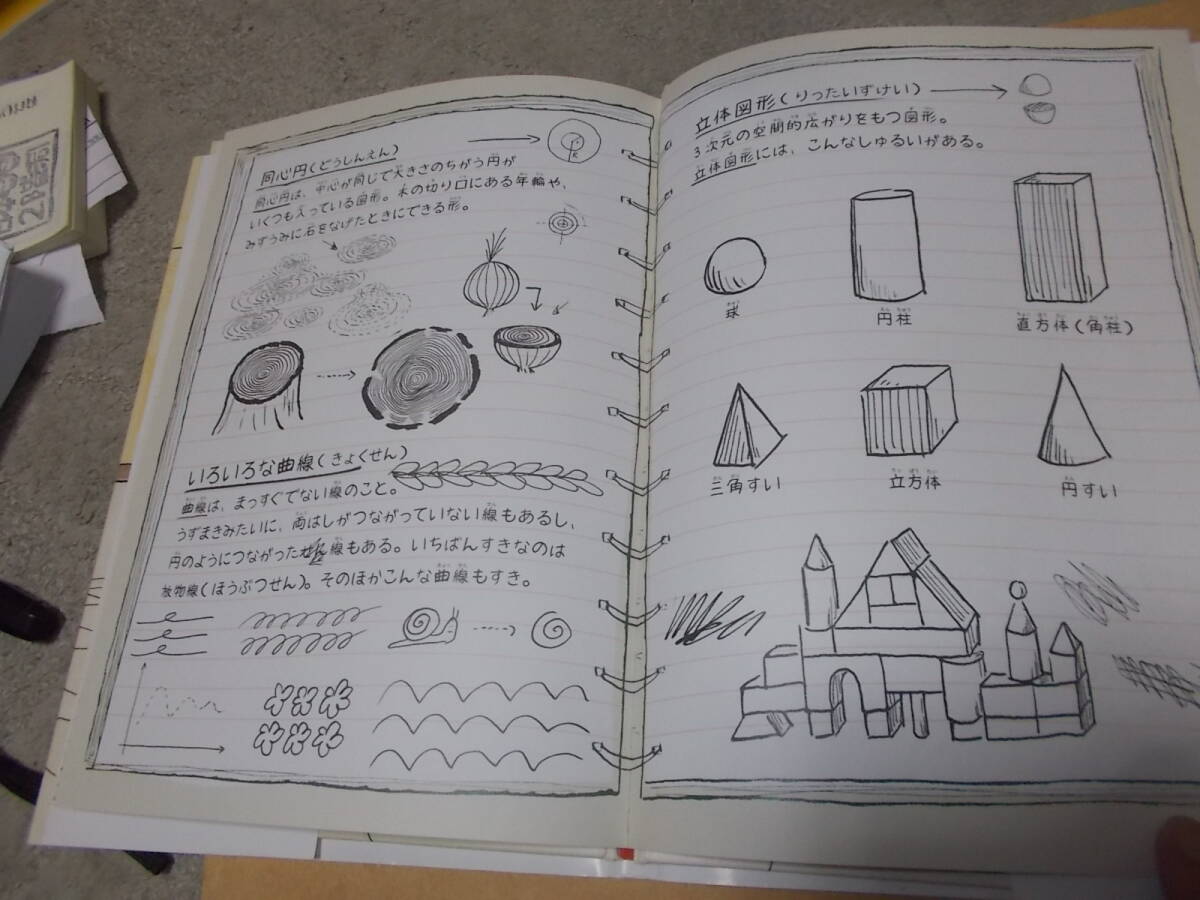 同心円(どうしんえん)
同心円は、中心が同じで大きさのちがう円が
いくつも入っている図形。木の切り口にある年輪や、
みずうみに石をなげたときにできる形。
いろいろな曲線(きょくせん)
曲線は、まっすぐでない線のこと。
うずまきみたいに、両はしがつながっていない線もあるし、
円のようにつながった線もある。いちばんすきなのは
放物線(ほうぶつせん)。そのほかこんな曲線もすき。
立体図形(りったいずけい)
3次元の空間的広がりをもつ図形。
立体図形には、こんなしゅるいがある。
球
円柱
直方体(角柱)
三角すい
立方体
円すい